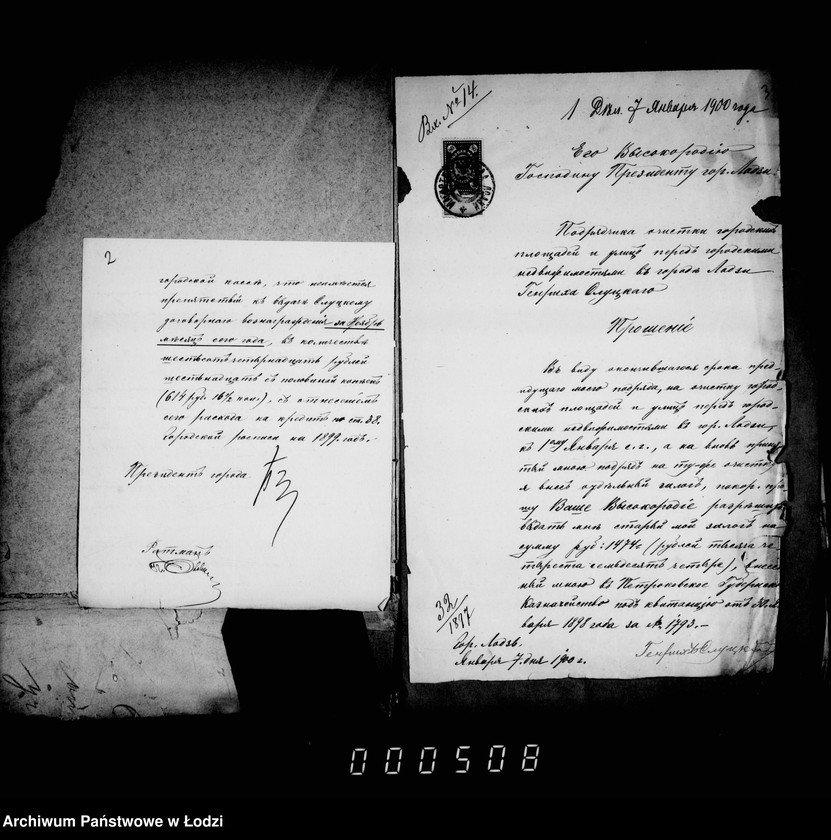 2
городской кассѣ, что неимѣется
препятствій къ выдачѣ Слуцкому
договорнаго вознагражденія за Ноябрь
мѣсяцъ сего года, въ количествѣ
шестьсотъ четырнадцать рублей
шестьнадцать съ половиной копѣекъ
(614 руб 16½ коп.), съ отнесеніемъ
сего расхода на кредитъ по ст. 38.
Городской росписи на 1899 годъ.-
Президентъ города
Ратманъ
3
Вх. № 14.
1 Дѣл. 7 Января 1900 года
Его Высокородію
Господину Президенту гор. Лодзи.
Подрядчика очистки городскихъ
площадей и улицъ передъ городскими
недвижимостями въ городѣ Лодзи
Генриха Слуцкаго
Прошеніе
Въ виду окончившагося срока пред-
идущаго моего подряда, на очистку город-
скихъ площадей и улицъ передъ город-
скими недвижимостями въ гор. Лодзи,
къ 1ому Января с. г., а на вновь приня-
тый мною подрядъ на ту-же очистку
я внесъ отдѣльный залогъ, покор. про-
шу Ваше Высокородіе разрѣшить
выдать мнѣ старый мой залогъ на
сумму руб: 1474 (рублей тысяча че-
тыреста семьдесятъ четыре), внесен-
ный мною въ Петроковское Губернское
Казначейство подъ квитанціею отъ 30. Ян-
варя 1898 года за № 1793.-
32/1877
Гор. Лодзь.
Января 7. дня 1900 г.
Генрихъ Слуцкій
000508
Archiwum Państwowe w Łodzi